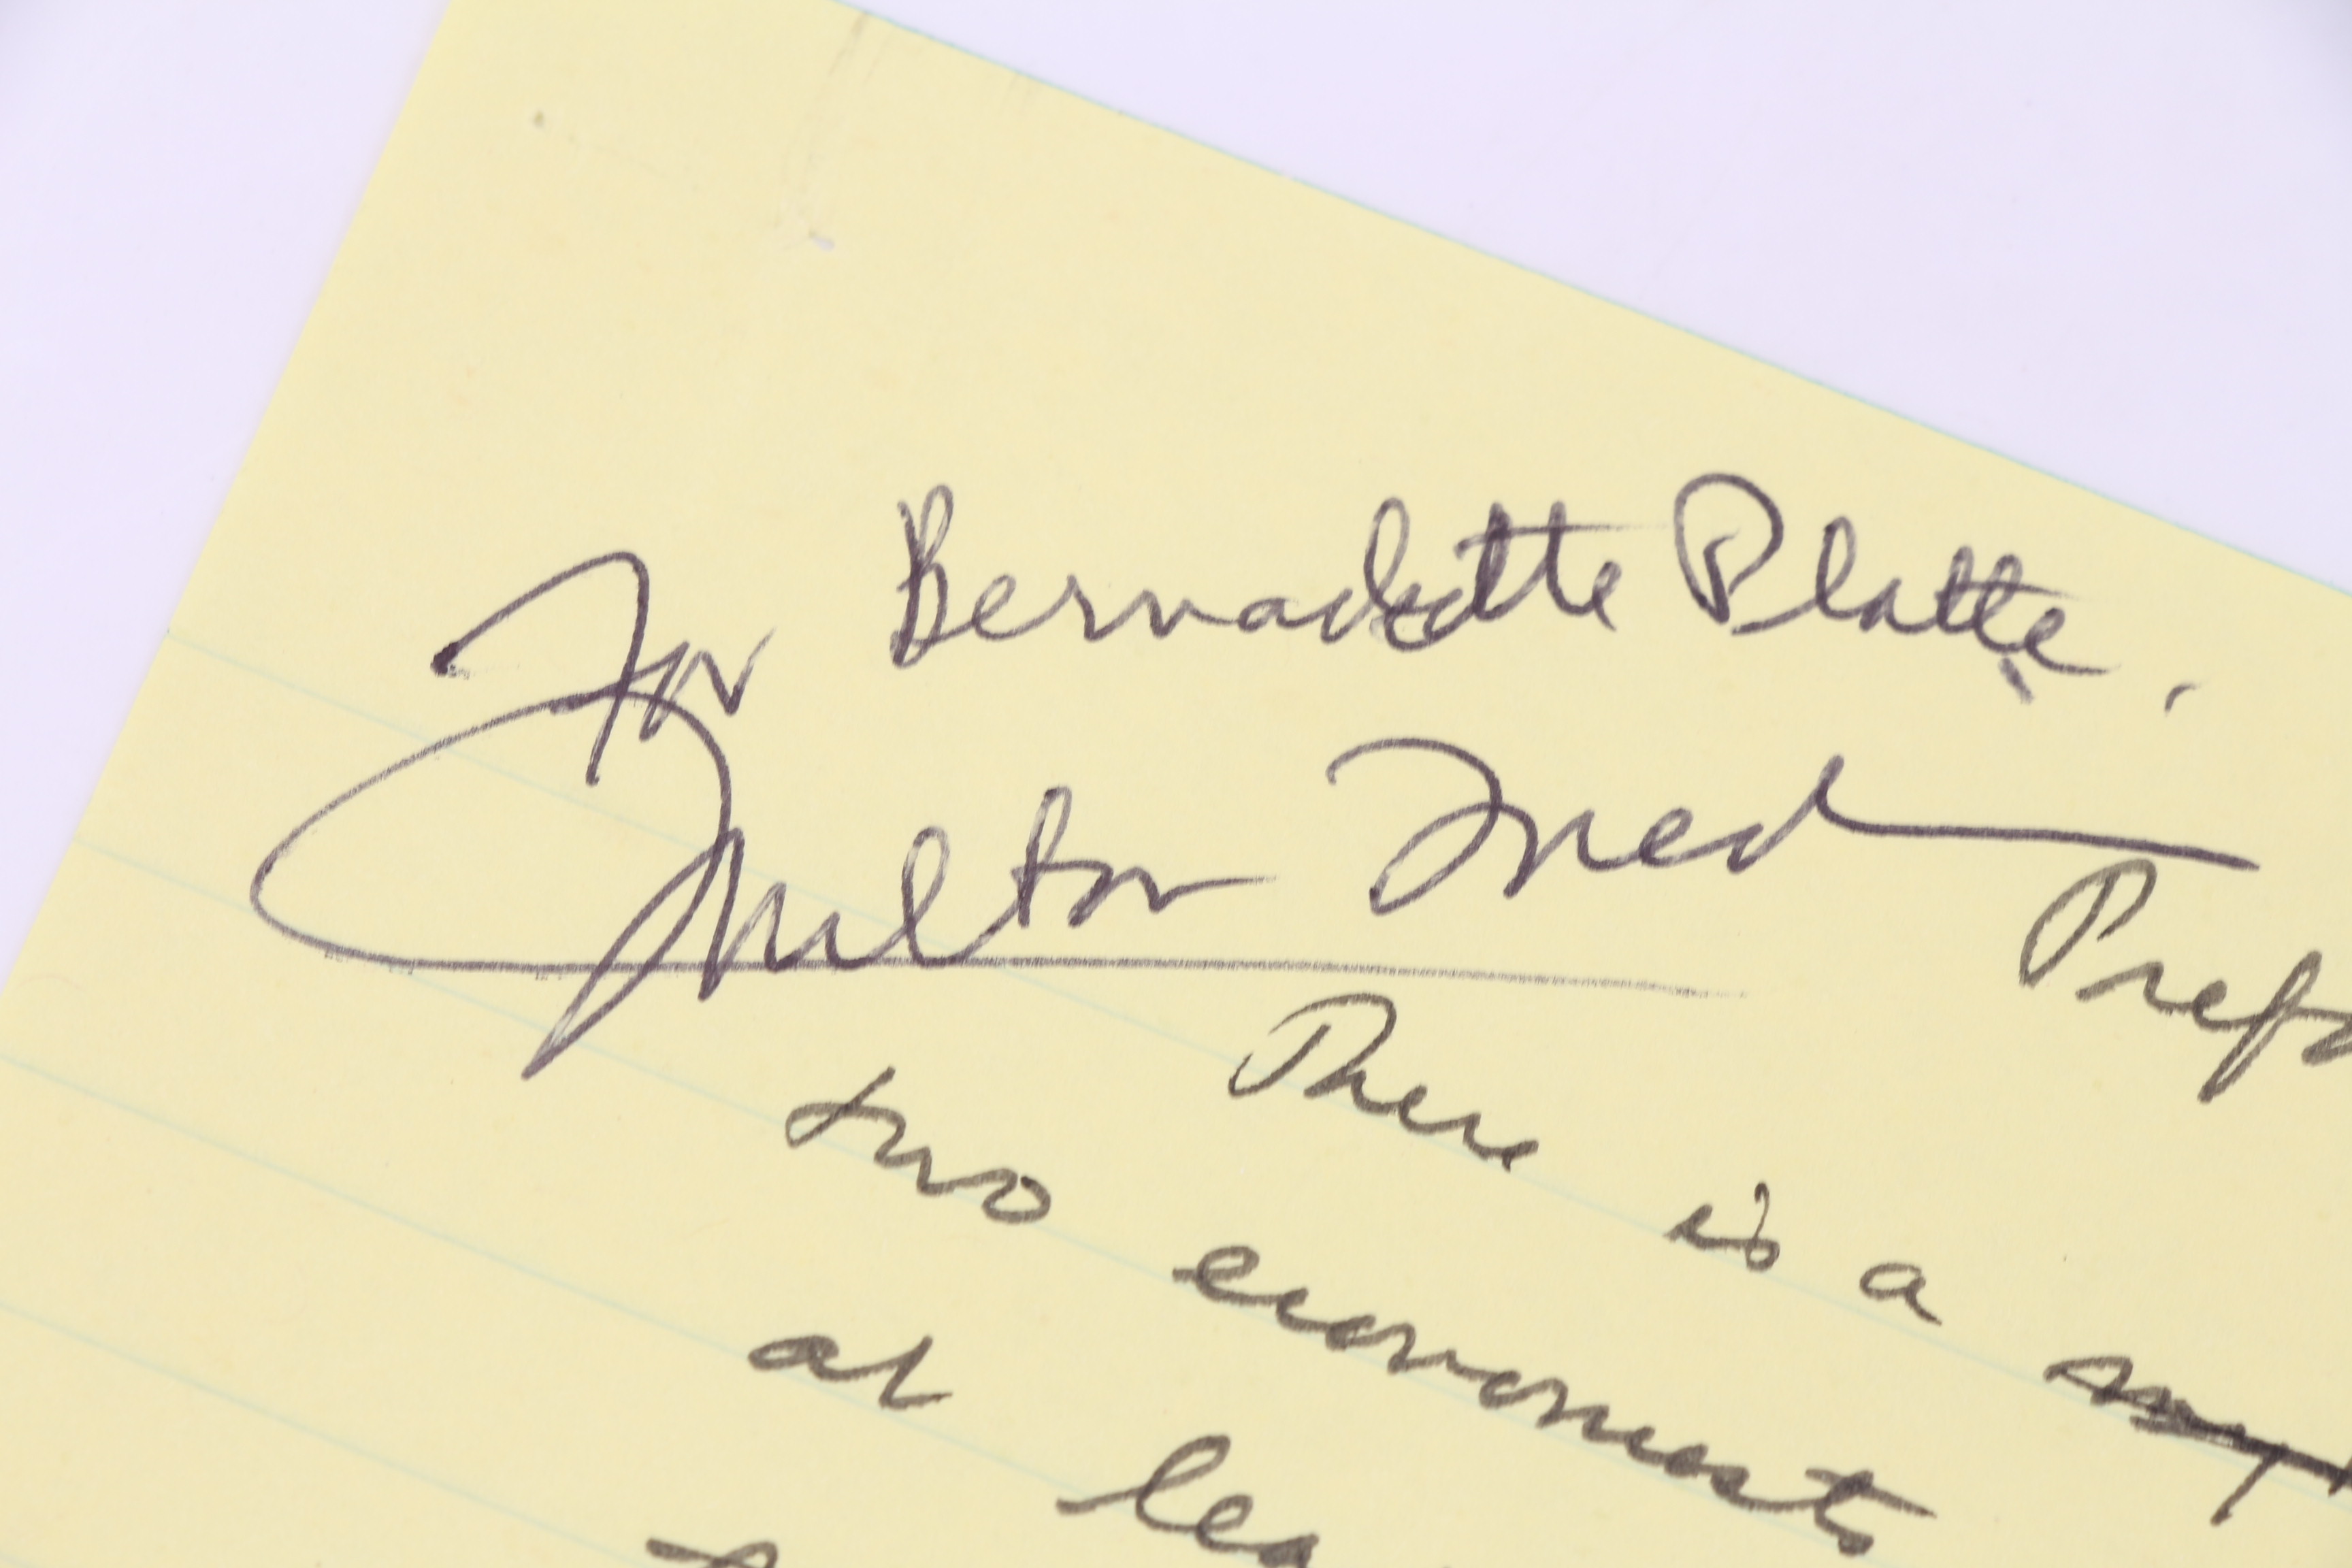 For Bernadette Platte,
Milton Fried
Prefa
There is a
two economists
at lea